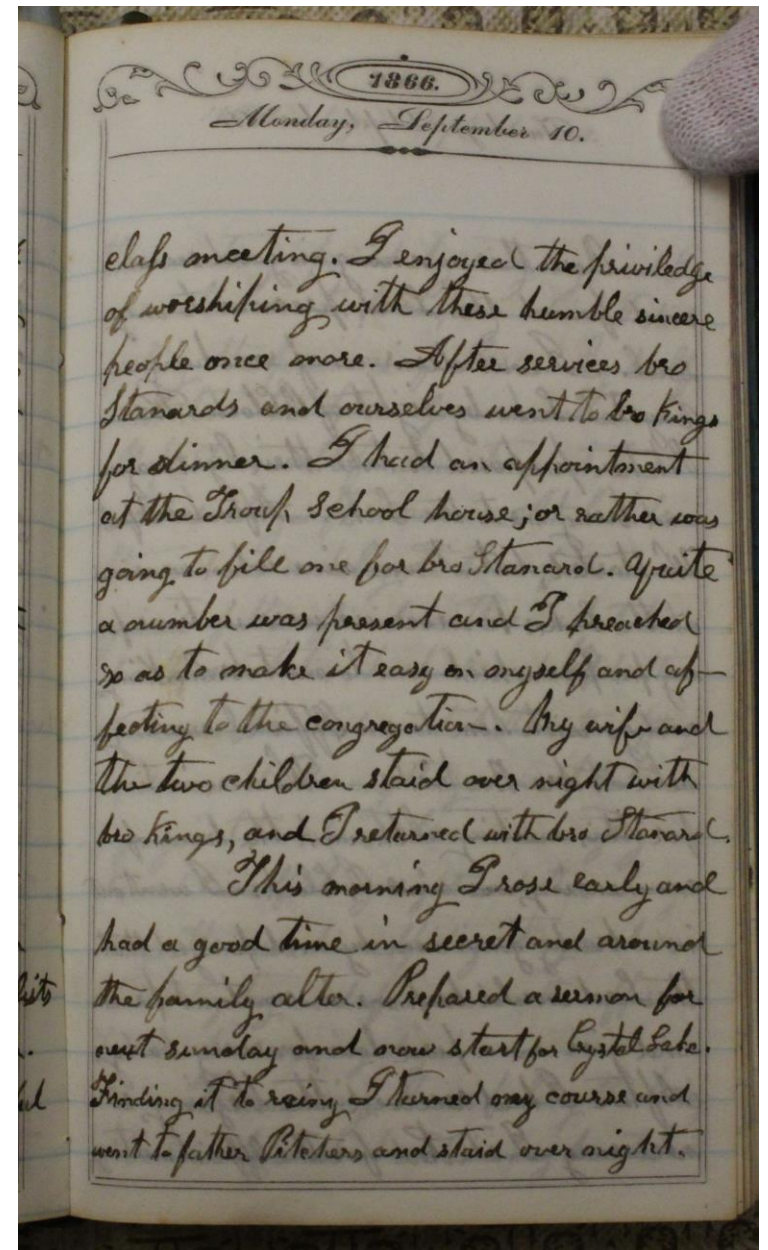 1866.
Monday, September 10.
class meeting. I enjoyed the priviledge
of worshiping with these humble sincere
people once more. After services bro
Stanards and ourselves went to bro Kings
for dinner. I had an appointment
at the Troup School house; or rather was
going to fill one for bro Stanard. Quite
a number was present and I preached
so as to make it easy on myself and af-
fecting to the congregation. My wife and
the two children staid over night with
bro Kings, and I returned with bro Stanard.
This morning I rose early and
had a good time in secret and around
the family alter. Prepared a sermon for
next sunday and now start for Crystal Lake.
Finding it to rainy I turned my course and
went to father Pitchers and staid over night.